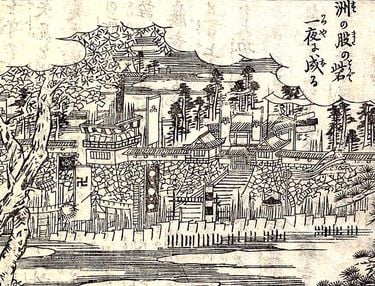 洲の股の砦
一夜に成る
卍